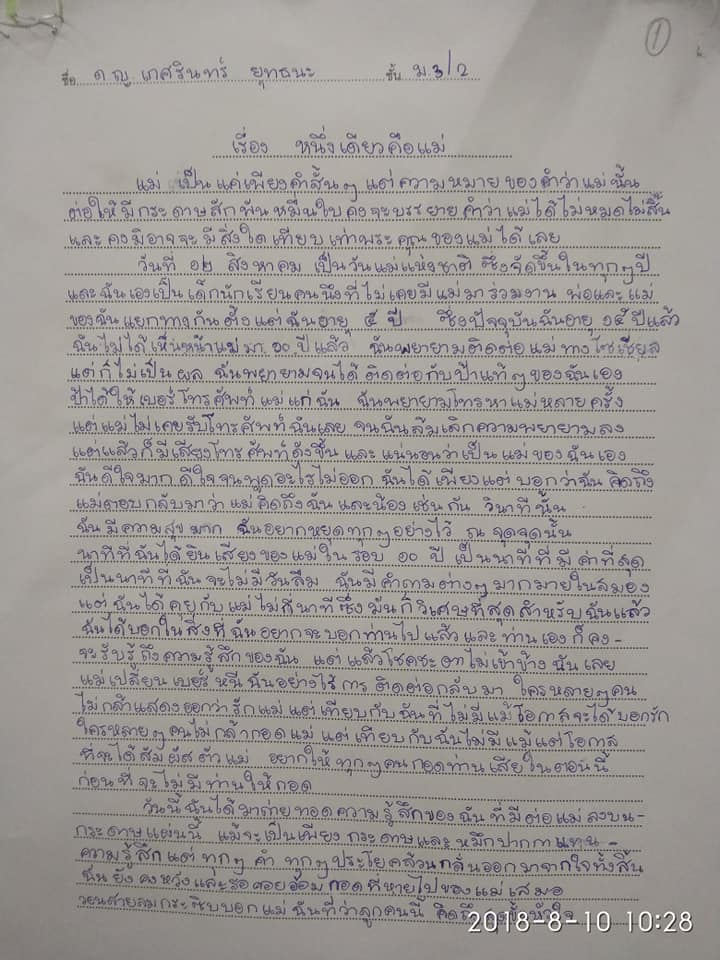 ①
ชื่อ ด.ญ. เกศรินทร์ ยุทธนะ ชั้น ม.3/2
เรื่อง หนึ่งเดียวคือแม่
แม่ เป็นแค่เพียงคำสั้นๆ แต่ความหมายของคำว่าแม่นั้น
ต่อให้มีกระดาษสักพันหมื่นใบคงจะบรรยายคำว่าแม่ได้ไม่หมดไม่สิ้น
และคงมิอาจจะมีสิ่งใดเทียบเท่าพระคุณของแม่ได้เลย
วันที่ ๑๒ สิงหาคม เป็นวันแม่แห่งชาติ ซึ่งจัดขึ้นในทุกๆปี
และฉันเองเป็นเด็กนักเรียนคนนึงที่ไม่เคยมีแม่มาร่วมงาน พ่อและแม่
ของฉันแยกทางกันตั้งแต่ฉันอายุ ๕ ปี ซึ่งปัจจุบันฉันอายุ ๑๕ ปีแล้ว
ฉันไม่ได้เห็นหน้าแม่มา ๑๐ ปีแล้ว ฉันพยายามติดต่อแม่ทางโซเชียล
แต่ก็ไม่เป็นผล ฉันพยายามจนได้ติดต่อกับป้าแท้ๆของฉันเอง
ป้าได้ให้เบอร์โทรศัพท์แม่แก่ฉัน ฉันพยายามโทรหาแม่หลายครั้ง
แต่แม่ไม่เคยรับโทรศัพท์ฉันเลย จนฉันล้มเลิกความพยายามลง
แต่แล้วก็มีเสียงโทรศัพท์ดังขึ้น และแน่นอนว่าเป็นแม่ของฉันเอง
ฉันดีใจมาก ดีใจจนพูดอะไรไม่ออก ฉันได้เพียงแต่บอกว่าฉันคิดถึง
แม่ตอบกลับมาว่าแม่คิดถึงฉันและน้องเช่นกัน วินาทีนั้น
ฉันมีความสุขมาก ฉันอยากหยุดทุกๆอย่างไว้ ณ จุดจุดนั้น
นาทีที่ฉันได้ยินเสียงของแม่ในรอบ ๑๐ ปี เป็นนาทีที่มีค่าที่สุด
เป็นนาทีที่ฉันจะไม่มีวันลืม ฉันมีคำถามต่างๆมากมายในสมอง
แต่ฉันได้คุยกับแม่ไม่กี่นาทีซึ่งมันก็วิเศษที่สุดสำหรับฉันแล้ว
ฉันได้บอกในสิ่งที่ฉันอยากจะบอกท่านไปแล้ว และท่านเองก็คง-
จะรับรู้ถึงความรู้สึกของฉัน แต่แล้วโชคชะตาไม่เข้าข้างฉันเลย
แม่เปลี่ยนเบอร์หนีฉันอย่างไร้การติดต่อกลับมา ใครหลายๆคน
ไม่กล้าแสดงออกว่ารักแม่ แต่เทียบกับฉันที่ไม่มีแม้โอกาสจะได้บอกรัก
ใครหลายๆคนไม่กล้ากอดแม่ แต่เทียบกับฉันไม่มีแม้แต่โอกาส
ที่จะได้สัมผัสตัวแม่ อยากให้ทุกๆคนกอดท่านเสียในตอนนี้
ก่อนที่จะไม่มีท่านให้กอด
วันนี้ฉันได้มาถ่ายทอดความรู้สึกของฉันที่มีต่อแม่ลงบน-
กระดาษแผ่นนี้ แม้จะเป็นเพียงกระดาษและหมึกปากกาแทน-
ความรู้สึก แต่ทุกๆคำ ทุกๆประโยคล้วนกลั่นออกมาจากใจทั้งสิ้น
ฉันยังคงหวังและรอคอยอ้อมกอดที่หายไปของแม่เสมอ
วอนสายลมกระซิบบอกแม่ฉันทีว่าลูกคนนี้ คิดถึง
2018-8-10 10:28